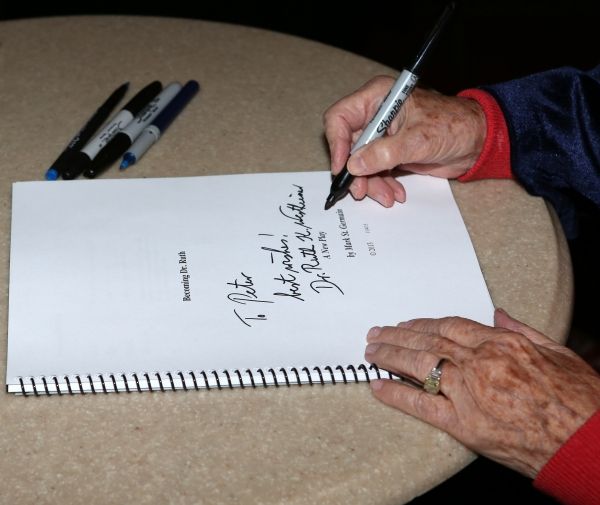 Becoming Dr. Ruth
To Peter
best wishes!
Dr. Ruth K. Westheimer
A New Play
by Mark St. Germain
©2013
Sharpie